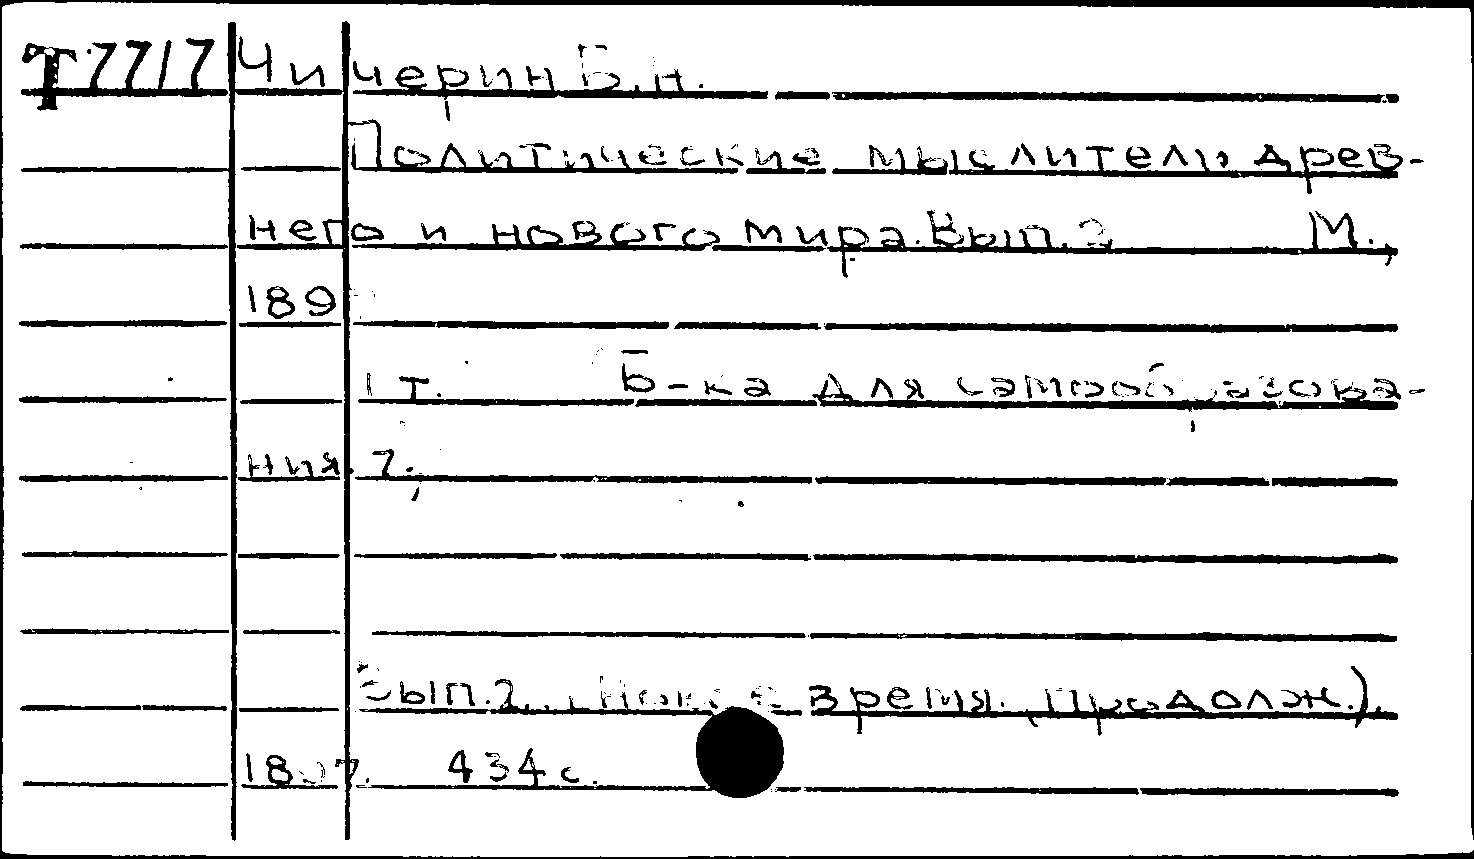 Т7717 Чичерин Б.Н.
Политические мыслители древ-
него и нового мира. Вып.2 М.,
189
1 т. Б-ка для самообразова-
ния. 7.,
Вып.2. Новое время. (Продолж.).
1897. 434 с.